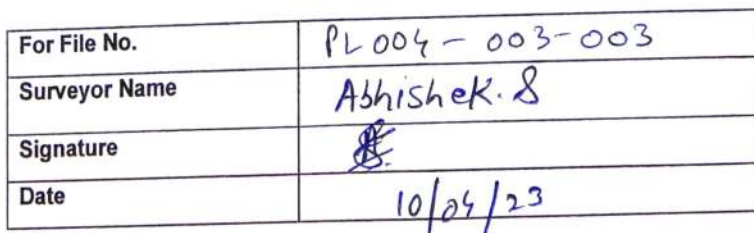 For File No. PL004 - 003-003
Surveyor Name Abhishek. S
Signature
Date 10/04/23